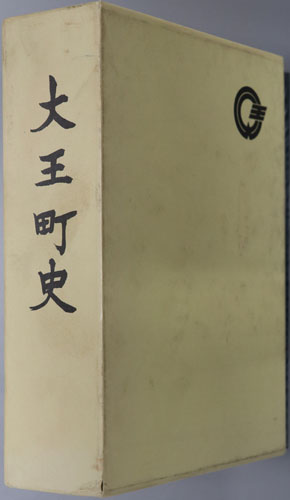 大王町史